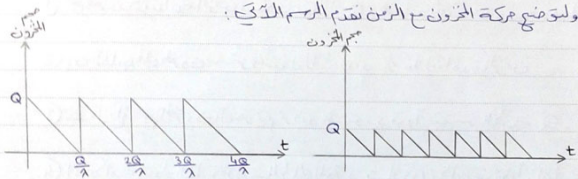 ولتوضيح حركة المخزون مع الزمن نقدم الرسم الآتي:
حجم
المخزون
Q
Q/λ 2Q/λ 3Q/λ 4Q/λ
t
حجم المخزون
Q
t